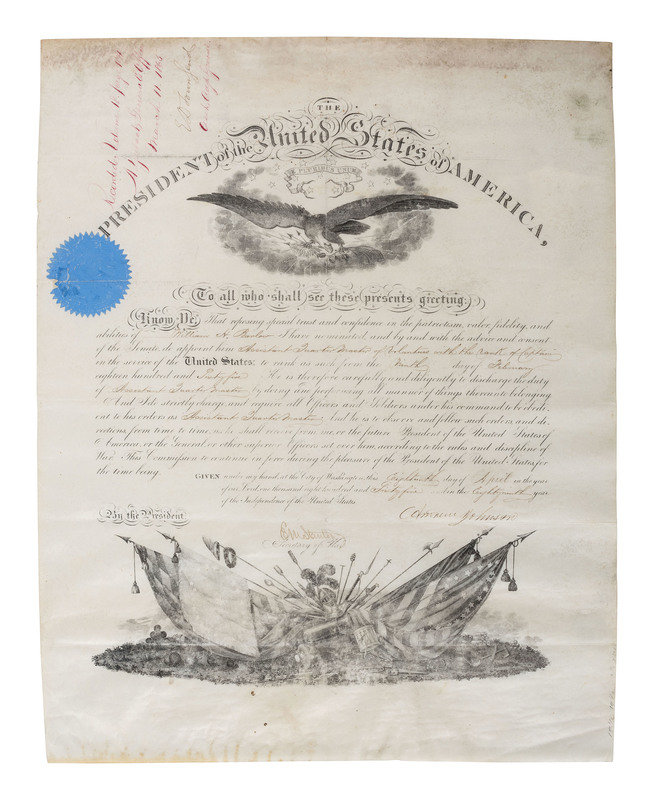 THE
PRESIDENT of the United States of AMERICA,
E PLURIBUS UNUM
To all who shall see these presents greeting:
Know Ye, That reposing special trust and confidence in the patriotism, valor, fidelity, and
abilities of William A. I have nominated, and by and with the advice and consent
of the Senate, do appoint him Assistant Quarter Master of Volunteers with the Rank of Captain
in the service of the United States: to rank as such from the day of February
eighteen hundred and Sixty five. He is therefore carefully and diligently to discharge the duty
of Assistant Quarter Master by doing and performing all manner of things thereunto belonging.
And I do strictly charge, and require all Officers and Soldiers under his command to be obedi-
ent to his orders as Assistant Quarter Master. And he is to observe and follow such orders, and di-
rections from time to time, as he shall receive from me, or the future President of the United States of
America, or the General, or other superior Officers set over him, according to the rules and discipline of
War. This Commission to continue in force during the pleasure of the President of the United States, for
the time being.
GIVEN under my hand at the City of Washington, this Eighteenth day of April in the year
of our Lord, one thousand eight hundred and Sixty five and in the Eighty ninth year
of the Independence of the United States.
By the President
Andrew Johnson
Secretary of War
Adjutant General's Office
1865
E D Townsend